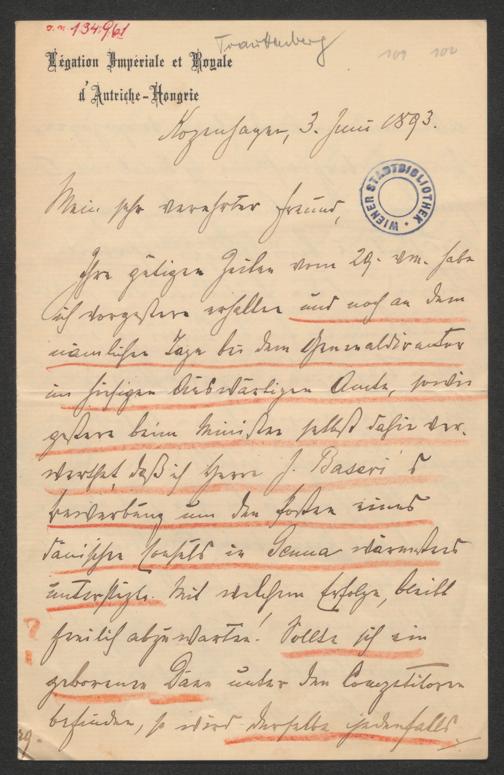 I.N. 134.961
Trauttenberg
101 102
Légation Impériale et Royale
d'Autriche-Hongrie
Kopenhagen, 3. Juni 1893.
WIENER STADTBIBLIOTHEK
Mein sehr verehrter Freund,
Ihre gütigen Zeilen vom 29. vm. habe
ich vorgestern erhalten und noch an dem
nämlichen Tage bei dem Generaldirector
im hiesigen Auswärtigen Amte, sowie
gestern beim Minister selbst dahin ver-
werthet, daß ich Herrn J. Baseri's
Bewerbung um den Posten eines
dänischen Consuls in Genua wärmstens
unterstützte. Mit welchem Erfolge, bleibt
freilich abzuwarten! Sollte sich ein
geborener Däne unter den Competitoren
befinden, so wird derselbe jedenfalls